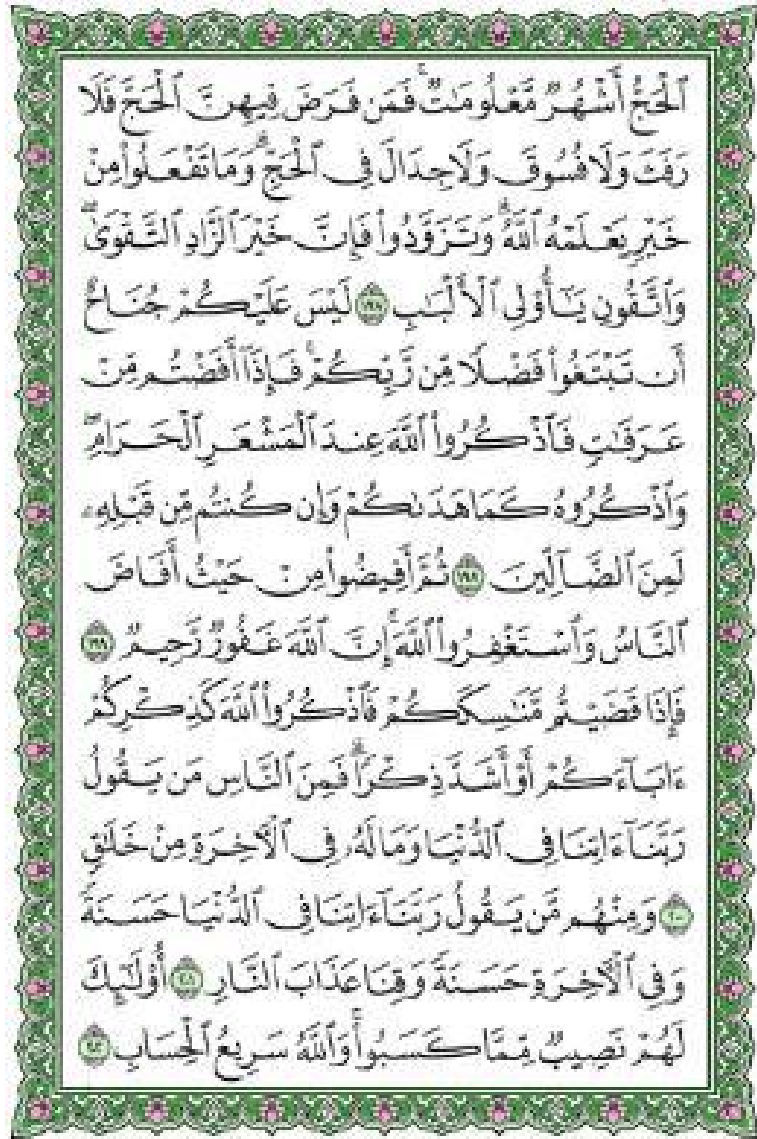 ٱلۡحَجُّ أَشۡهُرٞ مَّعۡلُومَٰتٞۚ فَمَن فَرَضَ فِيهِنَّ ٱلۡحَجَّ فَلَا
رَفَثَ وَلَا فُسُوقَ وَلَا جِدَالَ فِي ٱلۡحَجِّۗ وَمَا تَفۡعَلُواْ مِنۡ
خَيۡرٖ يَعۡلَمۡهُ ٱللَّهُۗ وَتَزَوَّدُواْ فَإِنَّ خَيۡرَ ٱلزَّادِ ٱلتَّقۡوَىٰۖ
وَٱتَّقُونِ يَٰٓأُوْلِي ٱلۡأَلۡبَٰبِ ١٩٧ لَيۡسَ عَلَيۡكُمۡ جُنَاحٌ
أَن تَبۡتَغُواْ فَضۡلٗا مِّن رَّبِّكُمۡۚ فَإِذَآ أَفَضۡتُم مِّنۡ
عَرَفَٰتٖ فَٱذۡكُرُواْ ٱللَّهَ عِندَ ٱلۡمَشۡعَرِ ٱلۡحَرَامِۖ
وَٱذۡكُرُوهُ كَمَا هَدَىٰكُمۡ وَإِن كُنتُم مِّن قَبۡلِهِۦ
لَمِنَ ٱلضَّآلِّينَ ١٩٨ ثُمَّ أَفِيضُواْ مِنۡ حَيۡثُ أَفَاضَ
ٱلنَّاسُ وَٱسۡتَغۡفِرُواْ ٱللَّهَۚ إِنَّ ٱللَّهَ غَفُورٞ رَّحِيمٞ ١٩٩
فَإِذَا قَضَيۡتُم مَّنَٰسِكَكُمۡ فَٱذۡكُرُواْ ٱللَّهَ كَذِكۡرِكُمۡ
ءَابَآءَكُمۡ أَوۡ أَشَدَّ ذِكۡرٗاۗ فَمِنَ ٱلنَّاسِ مَن يَقُولُ
رَبَّنَآ ءَاتِنَا فِي ٱلدُّنۡيَا وَمَا لَهُۥ فِي ٱلۡأٓخِرَةِ مِنۡ خَلَٰقٖ
٢٠٠ وَمِنۡهُم مَّن يَقُولُ رَبَّنَآ ءَاتِنَا فِي ٱلدُّنۡيَا حَسَنَةٗ
وَفِي ٱلۡأٓخِرَةِ حَسَنَةٗ وَقِنَا عَذَابَ ٱلنَّارِ ٢٠١ أُوْلَٰٓئِكَ
لَهُمۡ نَصِيبٞ مِّمَّا كَسَبُواْۚ وَٱللَّهُ سَرِيعُ ٱلۡحِسَابِ ٢٠٢